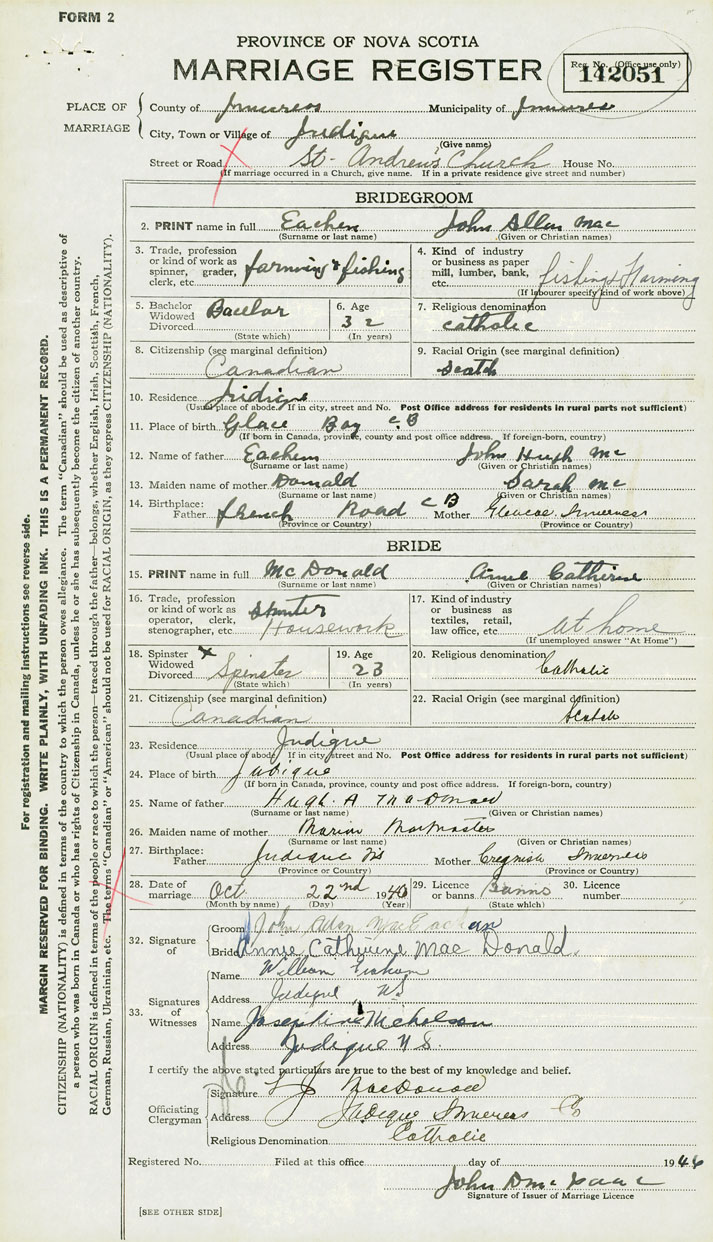 FORM 2
PROVINCE OF NOVA SCOTIA
MARRIAGE REGISTER
Reg. No. (Office use only)
142051
PLACE OF MARRIAGE
County of Inverness Municipality of Inverness
City, Town or Village of Judique
(Give name)
Street or Road St. Andrew's Church House No.
(If marriage occurred in a Church, give name. If in a private residence give street and number)
BRIDEGROOM
2. PRINT name in full Eachen John Allan Mac
(Surname or last name) (Given or Christian names)
3. Trade, profession or kind of work as spinner, grader, clerk, etc. farming & fishing
4. Kind of industry or business as paper mill, lumber, bank, etc. fishing & farming
(If labourer specify kind of work above)
5. Bachelor Widowed Divorced Bacelar
(State which)
6. Age 32
(In years)
7. Religious denomination catholic
8. Citizenship (see marginal definition) Canadian
9. Racial Origin (see marginal definition) Scotch
10. Residence Judique
(Usual place of abode. If in city, street and No. Post Office address for residents in rural parts not sufficient)
11. Place of birth Glace Bay C.B
(If born in Canada, province, county and post office address. If foreign-born, country)
12. Name of father Eachern John Hugh Mc
(Surname or last name) (Given or Christian names)
13. Maiden name of mother Donald Sarah Mc
(Surname or last name) (Given or Christian names)
14. Birthplace: Father French Road C B Mother Glencoe, Inverness
(Province or Country) (Province or Country)
BRIDE
15. PRINT name in full McDonald Anne Catherine
(Surname or last name) (Given or Christian names)
16. Trade, profession or kind of work as operator, clerk, stenographer, etc. Housework
17. Kind of industry or business as textiles, retail, law office, etc. At home
(If unemployed answer "At Home")
18. Spinster Widowed Divorced x Spinster
(State which)
19. Age 23
(In years)
20. Religious denomination Catholic
21. Citizenship (see marginal definition) Canadian
22. Racial Origin (see marginal definition) Scotch
23. Residence Judique
(Usual place of abode. If in city, street and No. Post Office address for residents in rural parts not sufficient)
24. Place of birth Judique
(If born in Canada, province, county and post office address. If foreign-born, country)
25. Name of father Hugh. A MacDonald
(Surname or last name) (Given or Christian names)
26. Maiden name of mother Marion MacMaster
(Surname or last name) (Given or Christian names)
27. Birthplace: Father Judique NS Mother Cregnish Inverness
(Province or Country) (Province or Country)
28. Date of marriage Oct 22nd 1946
(Month by name) (Day) (Year)
29. Licence or banns Banns
(State which)
30. Licence number
32. Signature of
Groom John Allan MacEachern
Bride Annie Catherine Mac Donald.
33. Signatures of Witnesses
Name William
Address Judique, NS
Name Josephine
Address Judique N S.
I certify the above stated particulars are true to the best of my knowledge and belief.
Officiating Clergyman
Signature MacDonald
Address Judique Inverness
Religious Denomination Catholic
Registered No. Filed at this office day of 1946
John D Mc Isaac
Signature of Issuer of Marriage Licence
[SEE OTHER SIDE]
For registration and mailing instructions see reverse side.
MARGIN RESERVED FOR BINDING. WRITE PLAINLY, WITH UNFADING INK. THIS IS A PERMANENT RECORD.
CITIZENSHIP (NATIONALITY) is defined in terms of the country to which the person owes allegiance. The term "Canadian" should be used as descriptive of
a person who was born in Canada or who has rights of Citizenship in Canada, unless he or she has subsequently become the citizen of another country.
RACIAL ORIGIN is defined in terms of the people or race to which the person—traced through the father—belongs, whether English, Irish, Scottish, French,
German, Russian, Ukrainian, etc. The terms "Canadian" or "American" should not be used for RACIAL ORIGIN, as they express CITIZENSHIP (NATIONALITY).